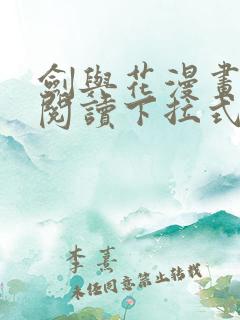 劍與花漫畫
閱讀下拉式
李熹
未任同意禁止转载